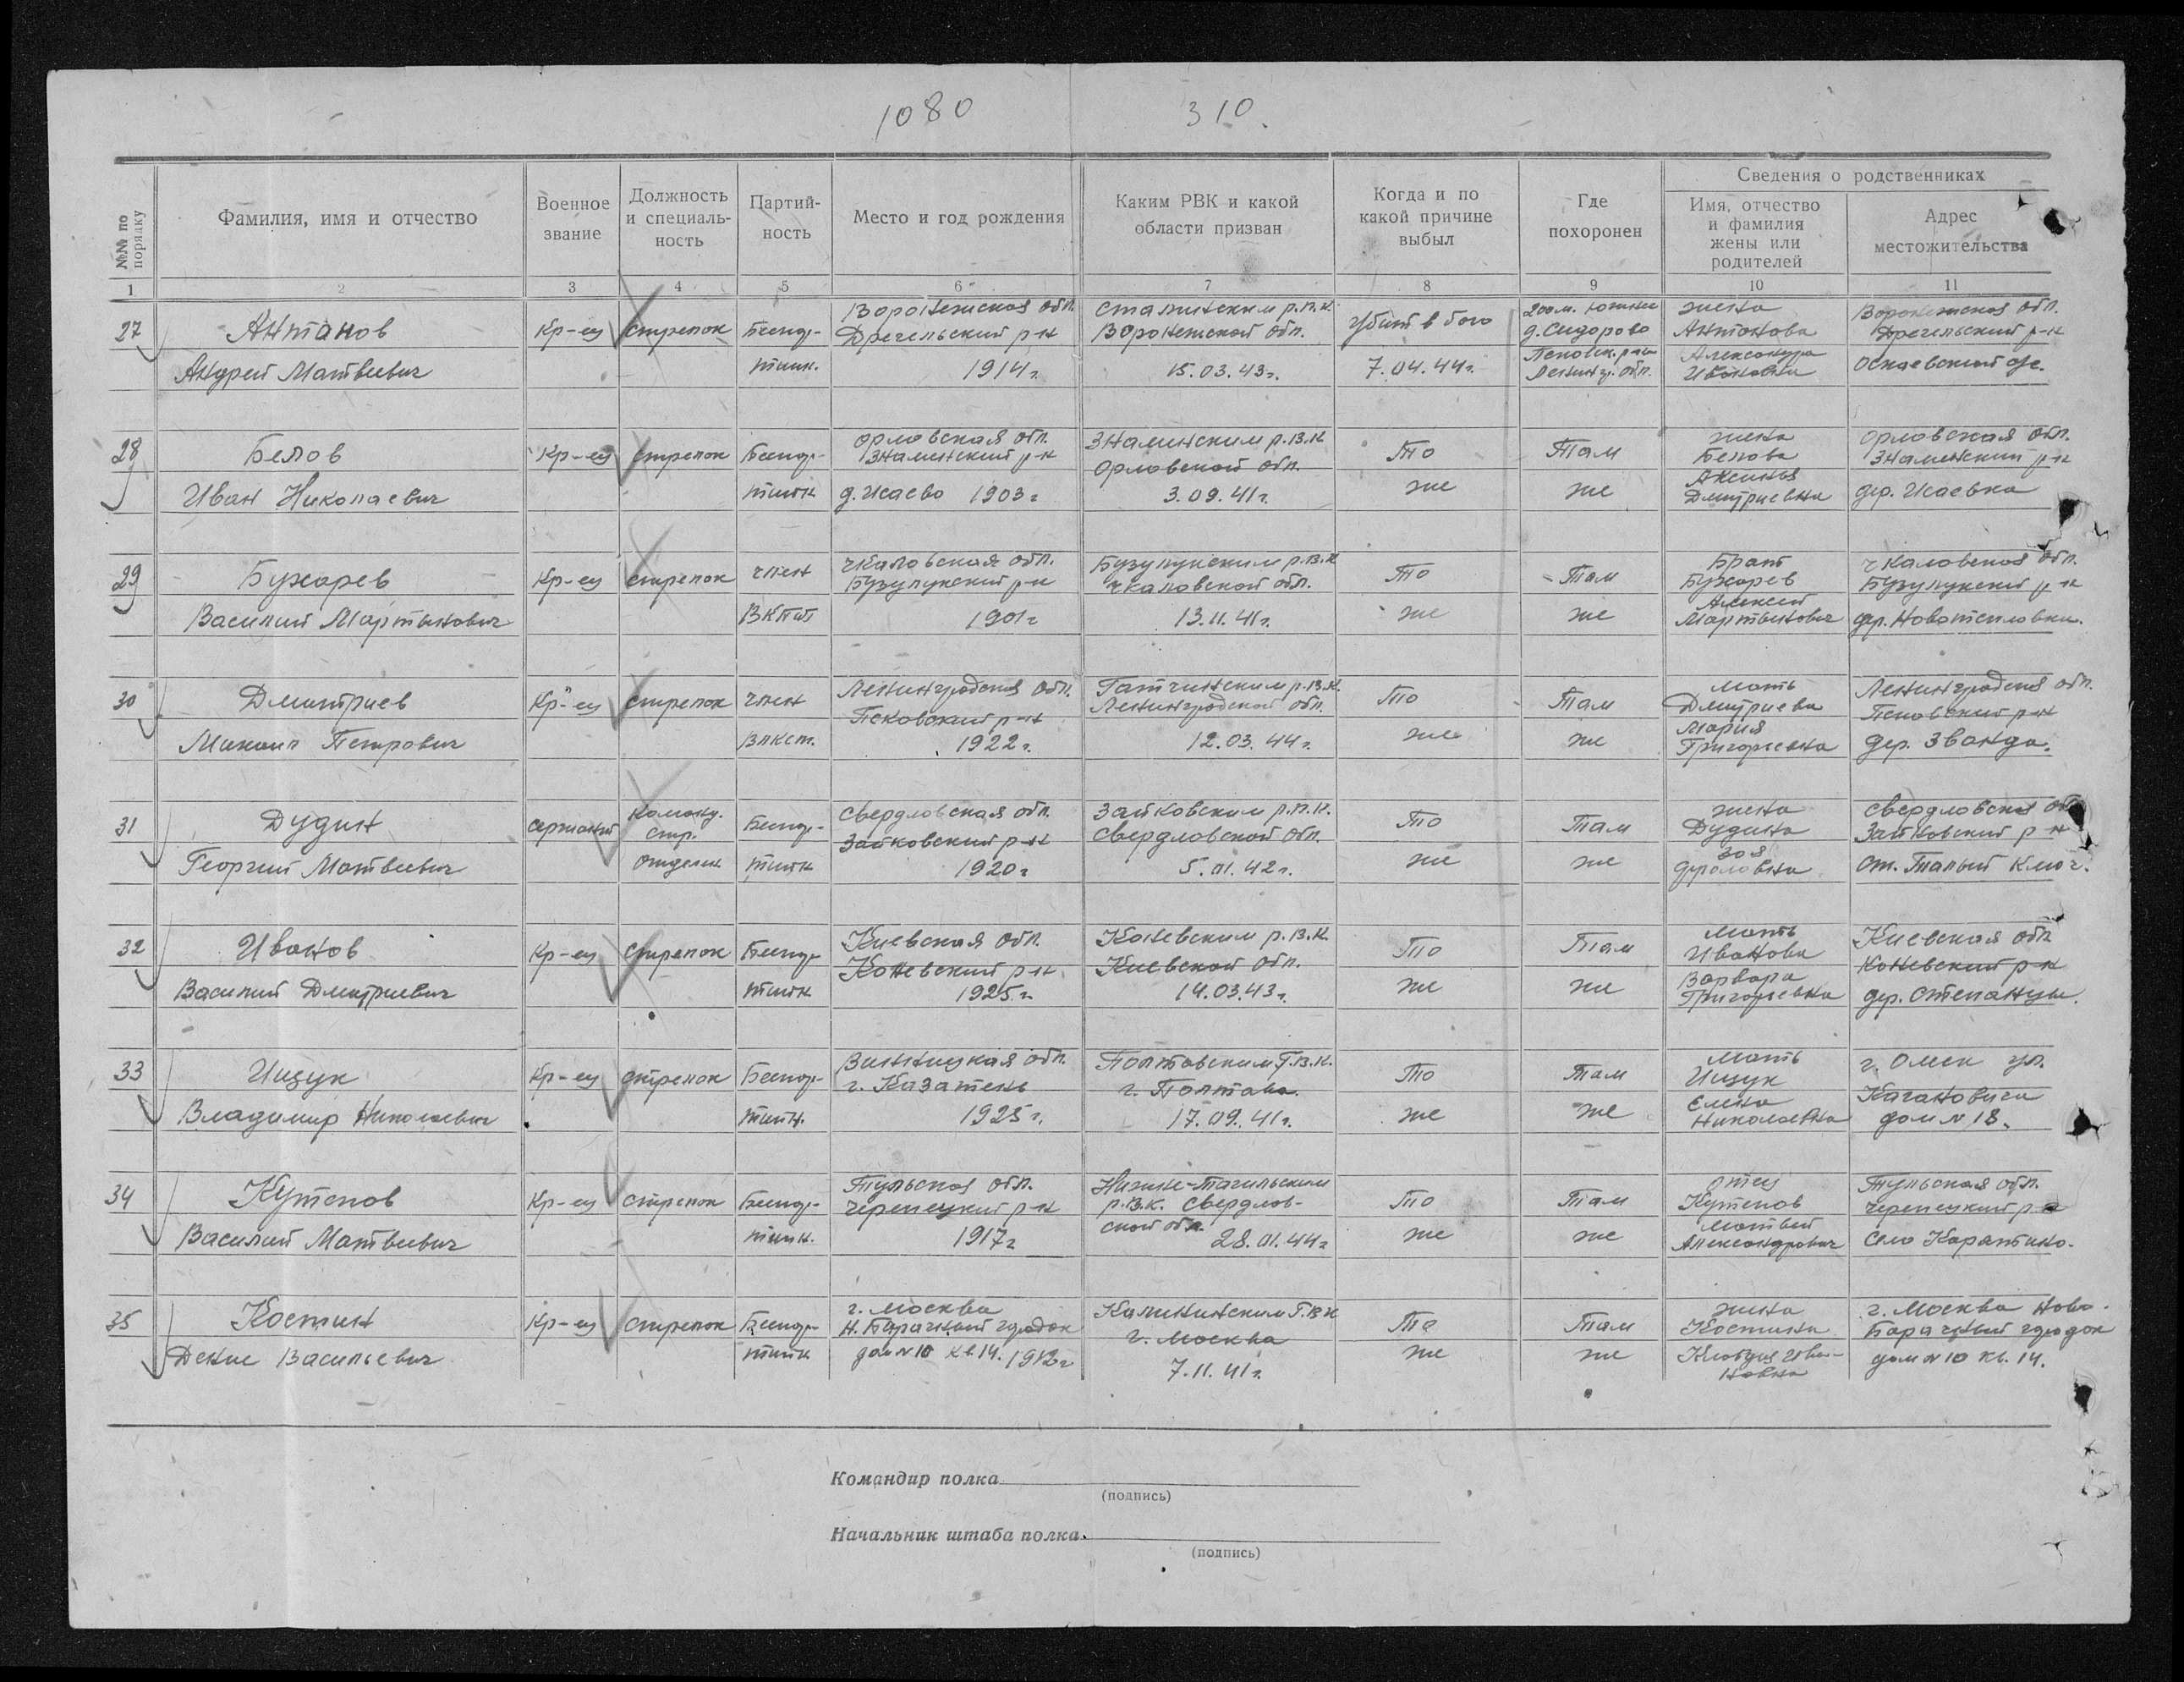 1080 310.
№№ по порядку
Фамилия, имя и отчество
Военное звание
Должность и специаль-ность
Партий-ность
Место и год рождения
Каким РВК и какой области призван
Когда и по какой причине выбыл
Где похоронен
Сведения о родственниках
Имя, отчество и фамилия жены или родителей
Адрес местожительства
1 2 3 4 5 6 7 8 9 10 11
27 Антанов Кр-ец стрелок Беспар- Воронежская обл. Сталинским р.в.к. убит в бою 200 м. южнее жена Воронежская обл.
Дрегельский р-н Воронежской обл. д. Сидорово Антонова Дрегельский р-н
Андрей Матвеевич тийн. 1914г. 15.03.43г. 7.04.44г. Псковск. р-на Александра
Ленингр. обл. Ивановна
28 Белов Кр-ец стрелок Беспар- Орловская обл. Знаминским р.в.к. То Там жена Орловская обл.
Знаминский р-н Орловской обл. Белова Знаменский р-н
Иван Николаевич тийн д. Исаево 1903г 3.09.41г. же же Аксинья дер. Исаевка
Дмитриевна
29 Бухарев Кр-ец стрелок член Чкаловская обл. Бузулукским р.в.к То Там Брат Чкаловская обл.
Бузулукский р-н Чкаловской обл. Бухарев Бузулукский р-н
Василий Мартынович ВКПб 1901г 13.11.41г. же же Алексей
Мартынович
30 Дмитриев Кр-ец стрелок член Ленинградская обл. Гатчинским р.в.к. То Там мать Ленинградская обл.
Псковский р-н Ленинградской обл. Дмитриева Псковский р-н
Михаил Петрович 1922г. 12.03.44г. же же Мария дер. Званда.
Григорьевна
31 Дудин сержант Команд. Беспар- Свердловская обл. Зайковским р.в.к. То Там жена Свердловская обл
стр. Зайковский р-н Свердловской обл. Дудина Зайковский р-н
Георгий Матвеевич отделен тийн 1920г 5.01.42г. же же Зоя ст. Талый Ключ.
32 Иванов Кр-ец стрелок Беспар- Киевская обл. Каневским р.в.к. То Там мать Киевская обл
Каневский р-н Киевской обл. Иванова Каневский р-н
Василий Дмитриевич тийн 1925г. 14.03.43г. же же Варвара дер. Степанцы.
Григорьевна
33 Ищук Кр-ец стрелок Беспар- Винницкая обл. Полтавским Г.в.к. То Там мать г. Омск ул.
г. Казатень г. Полтава. Ищук Кагановича
Владимир Николаевич тийн. 1925г. 17.09.41г. же же Елена дом № 18.
Николаевна
34 Кутепов Кр-ец стрелок Беспар- Тульская обл. Нижне-Тагильским То Там отец Тульская обл.
Черепецкий р-н р.в.к. Свердлов- Кутепов Черепецкий р-н
Василий Матвеевич тийн. 1917г ской обл. 28.01.44г же же Матвей село Карантино.
Александрович
35 Костин Кр-ец стрелок Беспар- г. Москва Калининским Г.в.к То Там жена г. Москва Ново-
Н. Барачный городок г. Москва Костина Барачный городок
Денис Васильевич тийн дом № 10 кв. 14. 1912г 7.11.41г. же же Клавдия Ива- дом № 10 кв. 14.
новна
Командир полка
(подпись)
Начальник штаба полка
(подпись)